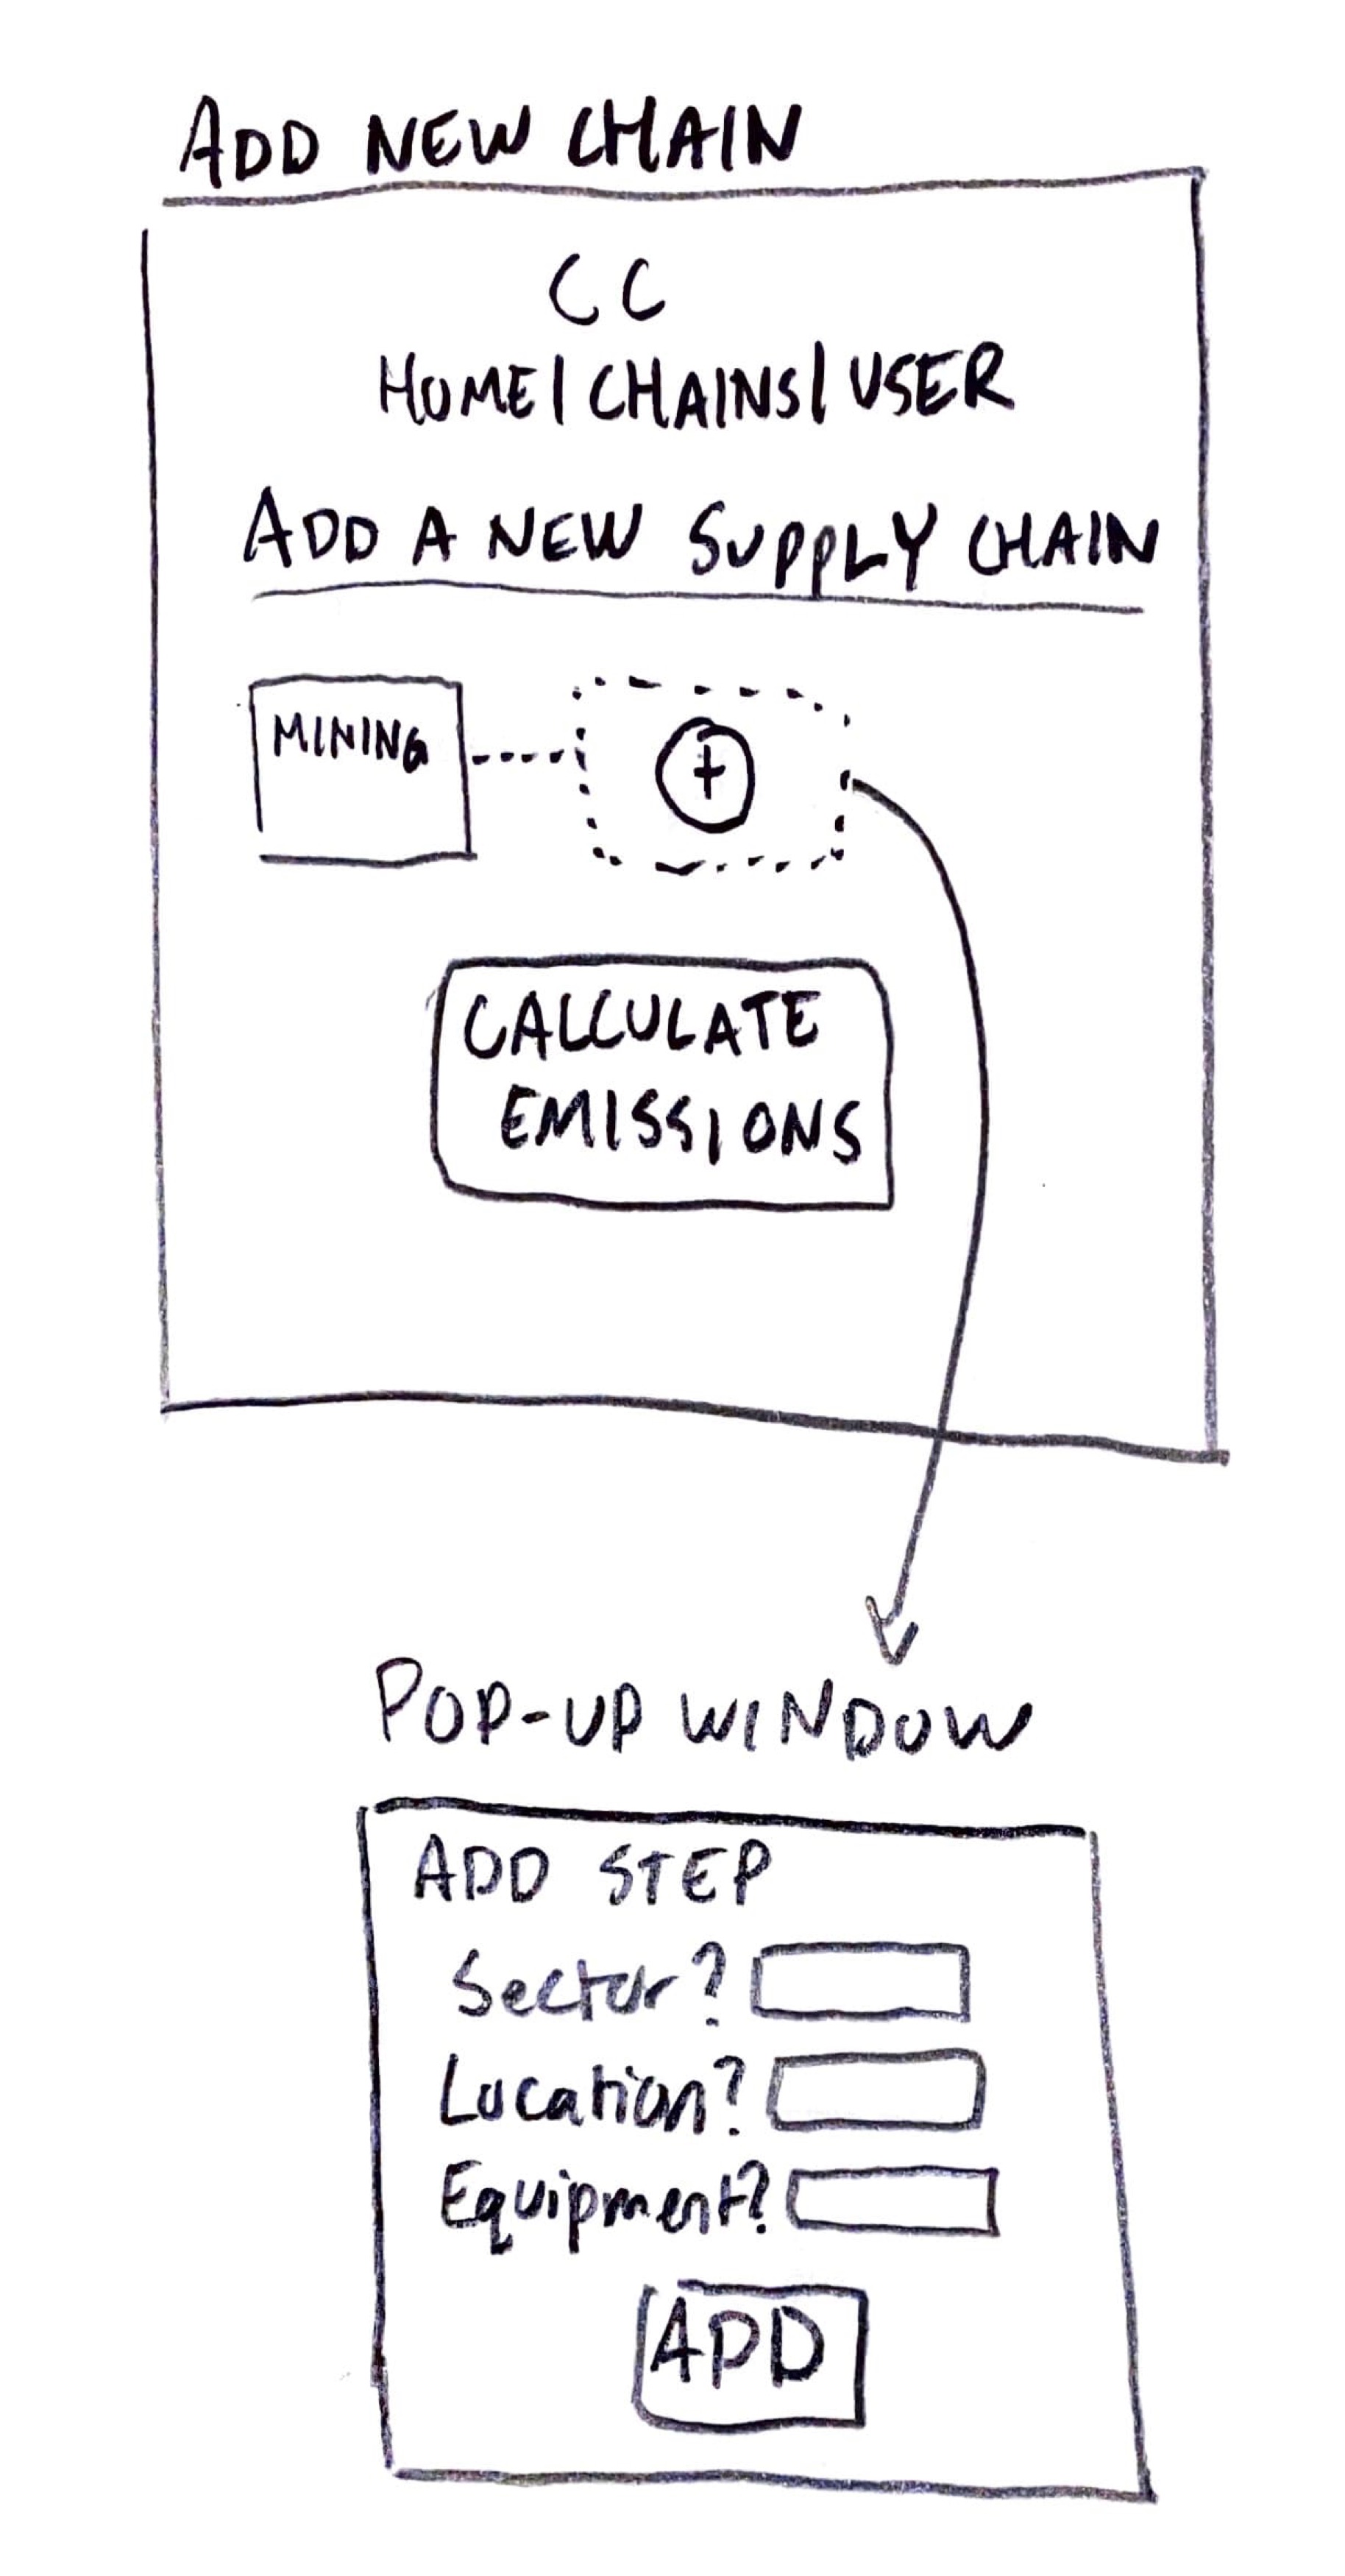 ADD NEW CHAIN
CC
HOME|CHAINS|USER
ADD A NEW SUPPLY CHAIN
MINING
+
CALCULATE
EMISSIONS
POP-UP WINDOW
ADD STEP
Sector?
Location?
Equipment?
ADD